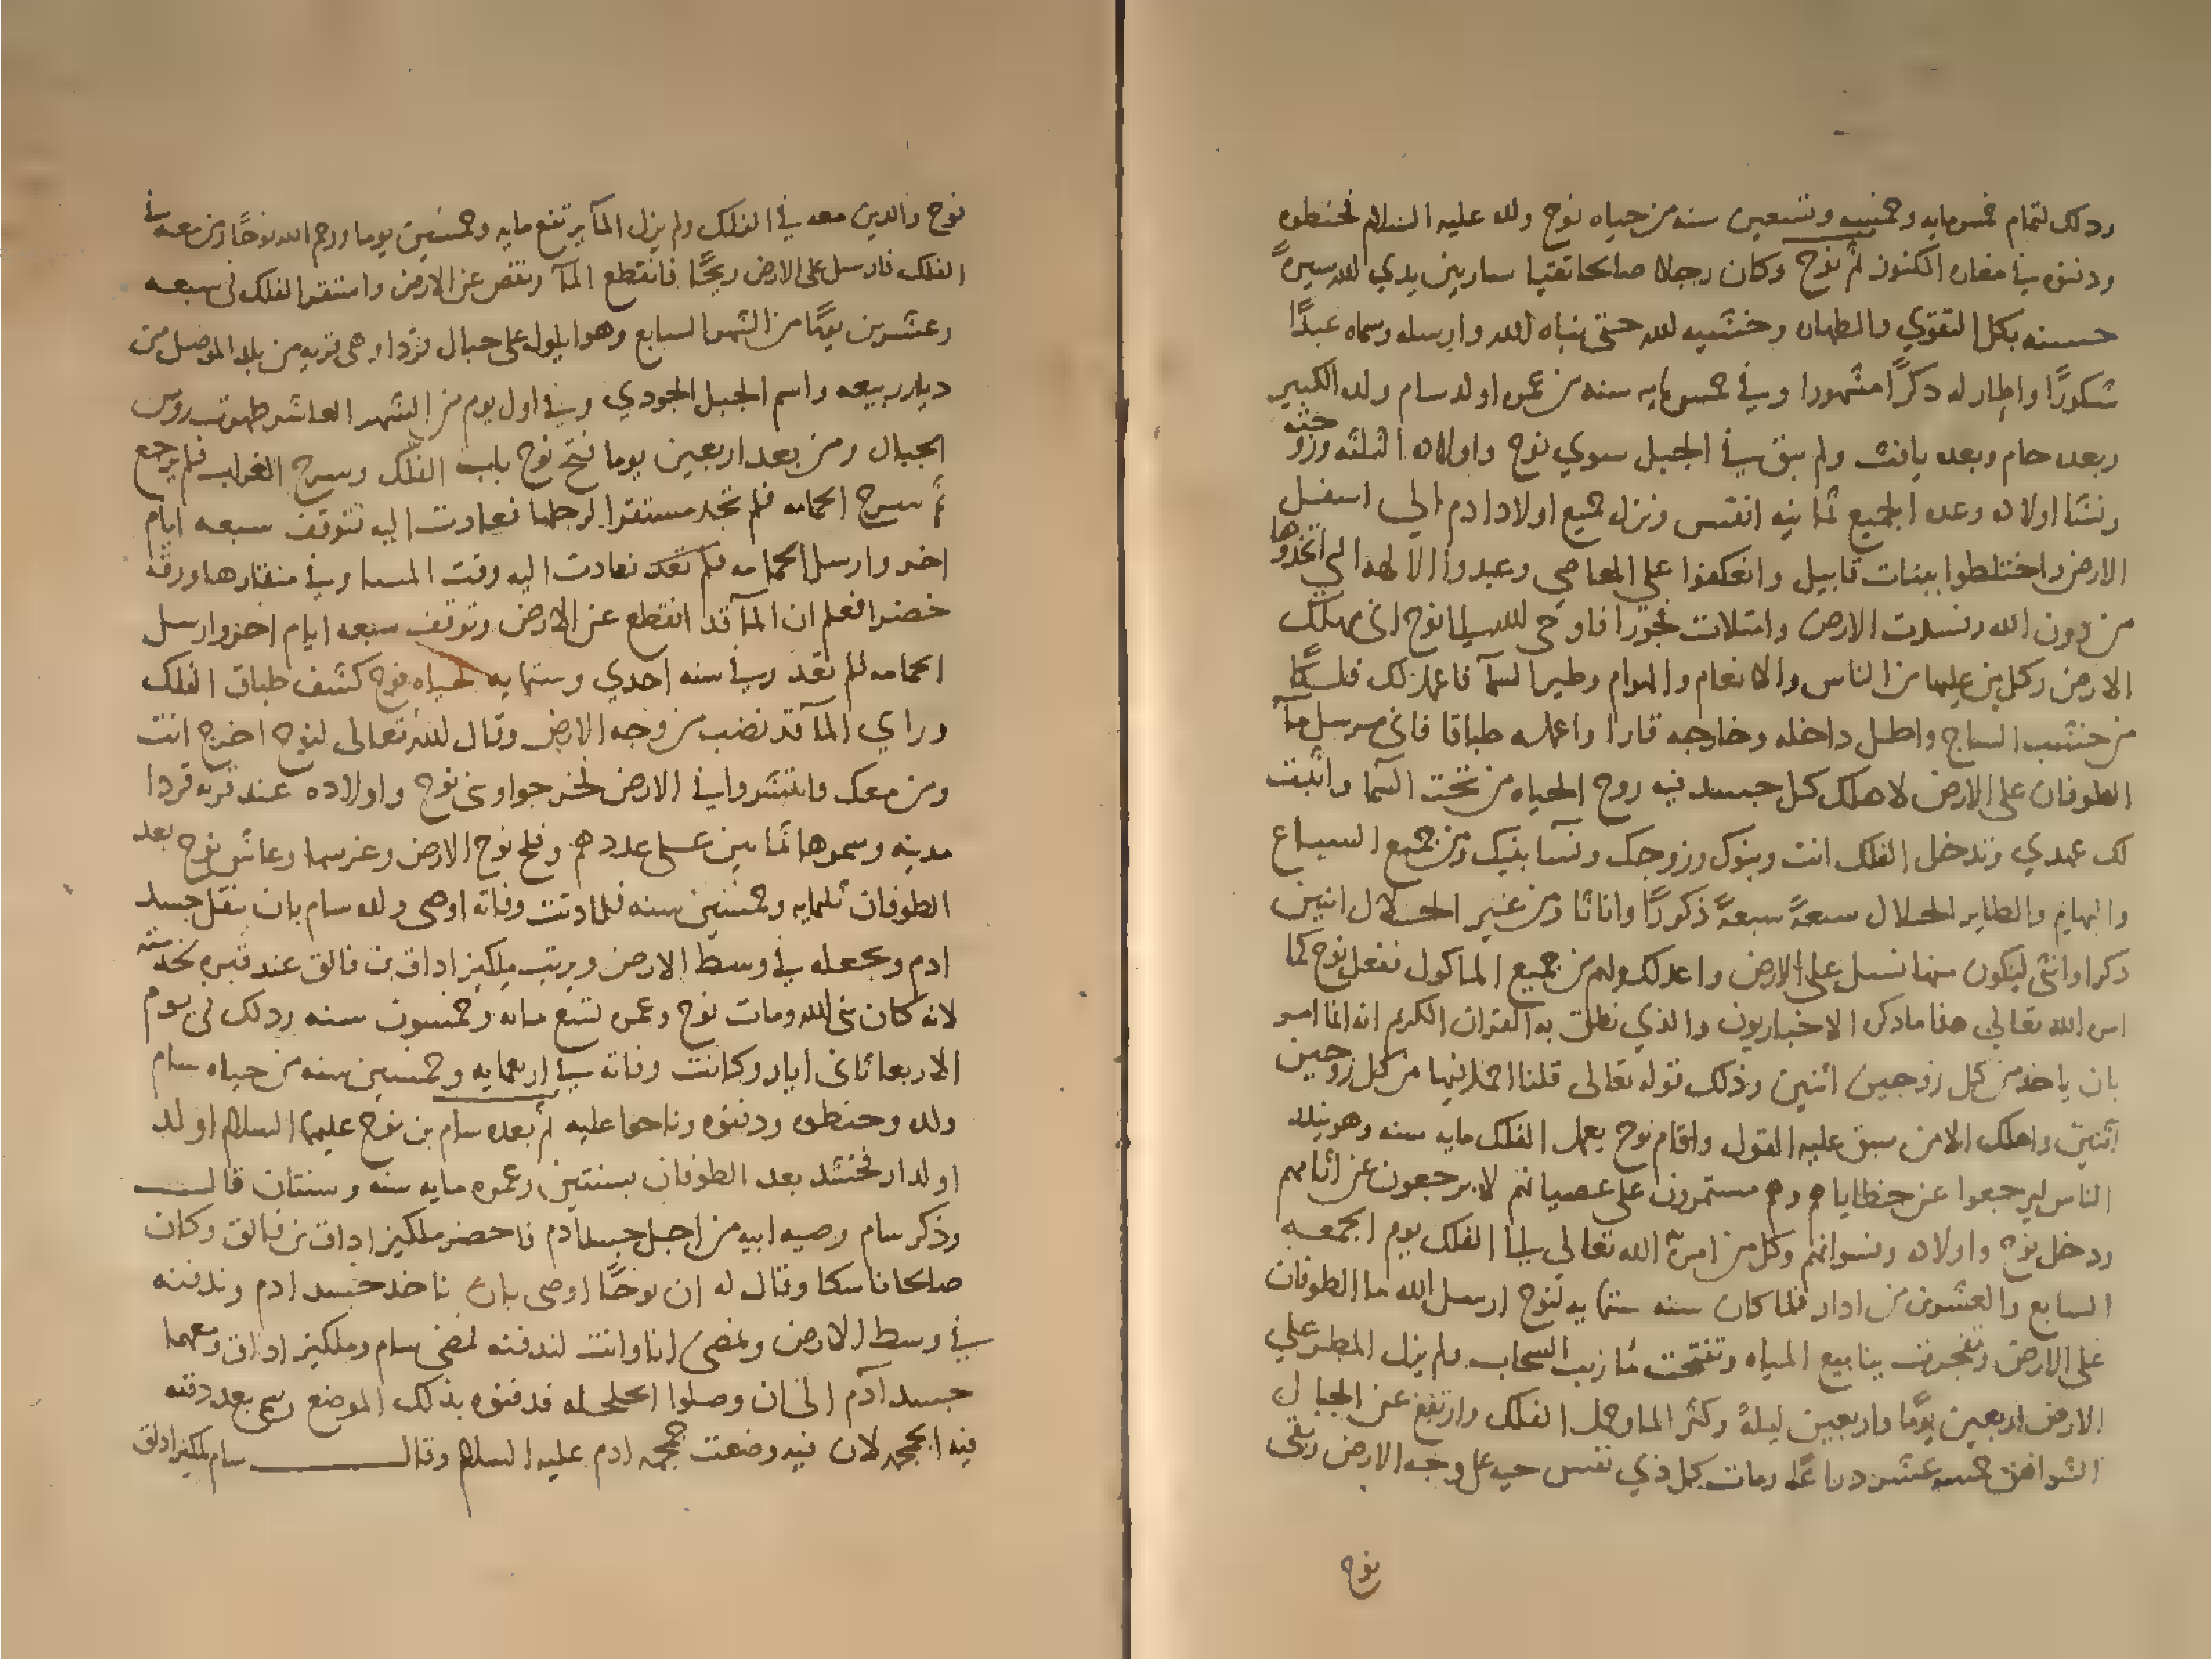 ودلك لتمام خمسمايه وخمسه وتسعين سنه من حياه نوح ولده عليه السلام فحنطوه
ودفنوه في مغاره الكنوز ثم نوح وكان رجلا صالحا تقيا سار بين يدي الله سيرةً
حسنه بكل التقوي والطهاره وخشيه لله حتى نباه الله وارسله وسماه عبدًا
شكورًا واطار له دكرًا مشهورا وفي خمسمايه سنه من عمره اولد سام ولده الكبير
وبعده حام وبعده يافث ولم يبق في الجبل سوي نوح واولاده الثلثه وزوجته
ونسا اولاده وعده الجميع ثمانيه انفس ونزل جميع اولاد ادم الي اسفل
الارض واختلطوا ببنات قابيل وانعكفوا علي المعاصي وعبدوا الالهه التي اتخدوها
من دون الله وفسدت الارض وامتلات فجورا فاوحي الله الي نوح اني مهلك
الارض وكل من عليها من الناس والانعام والهوام وطير السما فاعمل لك فلسكًا
من خشب الساج واطل داخله وخارجه قارا واعمله طباقا فاني مرسل مآ
الطوفان على الارض لاهلك كل جسد فيه روح الحياه من تحت السما واثبت
لك عهدي وتدخل الفلك انت وبنوك وزوجك ونسآ بنيك ومن جميع السباع
والبهايم والطاير الحلال سبعةً سبعةً ذكورًا واناثا ومن غير الحلال اثنين
دكرا وانثى ليكون منها نسل على الارض واعد لك ولهم من جميع الماكول ففعل نوح كما
امره الله تعالي هذا ما دكره الاخباريون والذي نطق به القران الكريم انه انما امر
بان ياخد من كل زوجين اثنين وذلك قوله تعالى قلنا احمل فيها من كل زوجين
اثنين واهلك الا من سبق عليه القول واقام نوح يعمل الفلك مايه سنه وهو ينبه
الناس ليرجعوا عن خطاياهم وهم مستمرون على عصيانهم لا يرجعون عن اثامهم
ودخل نوح واولاده ونسوانهم وكل من امره الله تعالى الي الفلك يوم الجمعه
السابع والعشرين من ادار فلما كان سنه ستمايه لنوح ارسل الله ما الطوفان
على الارض وتفجرت ينابيع المياه وتفتحت مازيب السحاب ولم يزل المطر علي
الارض اربعين يومًا واربعين ليلةً وكثر الما وحمل الفلك وارتفع عن الجبال
الشواهق خمسه عشر دراعًا ومات كل ذي نفس حيه على وجه الارض وبقى
نوح
نوح والدين معه في الفلك ولم يزل المآ يرتفع مايه وخمسين يوما ورحم الله نوحًا ومن معه في
الفلك فارسل على الارض ريحًا فانقطع المآ ونقص عن الارض واستقر الفلك في سبعه
وعشرين يومًا من الشهر السابع وهو ايلول على جبال قردا وهى قريه من بلاد الموصل من
ديار ربيعه واسم الجبل الجودي وفي اول يوم من الشهر العاشر ظهرت روس
الجبال ومن بعد اربعين يوما فتح نوح باب الفلك وسرح الغراب فلم يرجع
ثم سرح الحمامه فلم تجد مستقرا لرجلها فعادت اليه فتوقف سبعه ايام
اخر وارسل الحمامه فلم تعد فعادت اليه وقت المسا وفي منقارها ورقه
خضرا فعلم ان المآ قد انقطع عن الارض وتوقف سبعه ايام اخر وارسل
الحمامه فلم تعد وفي سنه احدي وستمايه لحياه نوح كشف طباق الفلك
وراي المآ قد نضب من وجه الارض وقال الله تعالى لنوح اخرج انت
ومن معك وانتشروا في الارض فخرجوا وبنى نوح واولاده عند قريه قردا
مدينه وسموها ثمانين على عددهم وفلح نوح الارض وغرسها وعاش نوح بعد
الطوفان ثلثمايه وخمسين سنه فلما دنت وفاته اوصى ولده سام بان ينقل جسد
ادم ويجعله في وسط الارض ويرتب ملكيزاداق بن فالق عند قبره بخدمته
لانه كان نبى الله ومات نوح وعمره تسع مايه وخمسون سنه ودلك في يوم
الاربعا ثانى ايار وكانت وفاته في اربعمايه وخمسين سنه من حياه سام
ولده وحنطوه ودفنوه وناحوا عليه ثم بعده سام بن نوح عليهما السلام اولد
اولد ارفخشد بعد الطوفان بسنتين وعمره مايه سنه وسنتان قال
وذكر سام وصيه ابيه من اجل جسد ادم فاحضر ملكيزاداق بن فالق وكان
صالحا ناسكا وقال له ان نوحًا اوصى بان ناخد جسد ادم وندفنه
في وسط الارض ونمضى انا وانت لندفنه فمضى سام وملكيزاداق ومعهما
جسد آدم الى ان وصلوا الجلجله فدفنوه بذلك الموضع وسمي بعد دفنه
فيه الجمجمه لان فيه وضعت جمجمه ادم عليه السلام وقال سام لملكيزاداق